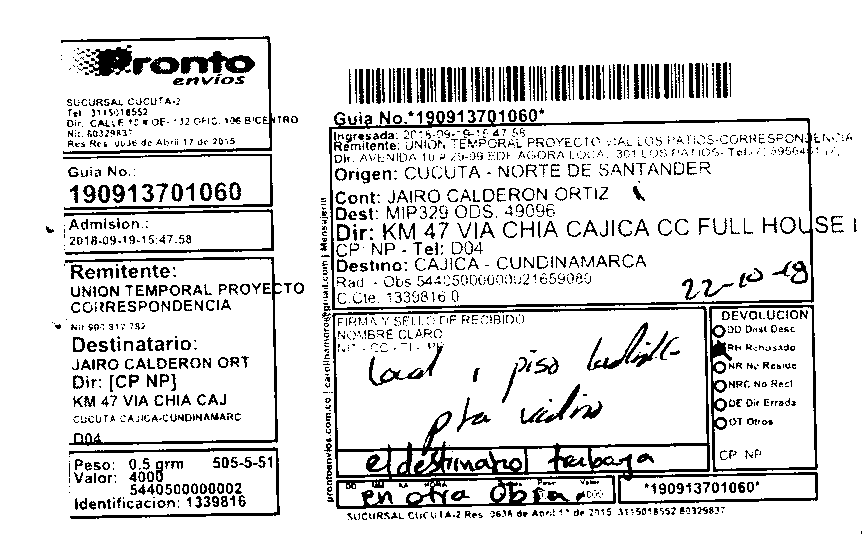 Pronto
envios
SUCURSAL CUCUTA-2
Tel. 3115018552
Nit. 60329837
Res Res. 0636 de Abril 17 de 2015
Guia No.:
190913701060
Admision.:
2018-09-19-15:47.58
Remitente:
UNION TEMPORAL PROYECTO
CORRESPONDENCIA
Destinatario:
JAIRO CALDERON ORT
Dir: [CP NP]
KM 47 VIA CHIA CAJ
CUCUTA CAJICA-CUNDINAMARC
D04
Peso: 0.5 grm 505-5-51
Valor: 4000
5440500000002
Identificacion: 1339816
Guia No.*190913701060*
Ingresada: 2018-09-19-15:47.58
Remitente: UNION TEMPORAL PROYECTO VIAL LOS PATIOS-CORRESPONDENCIA
Origen: CUCUTA - NORTE DE SANTANDER
Cont: JAIRO CALDERON ORTIZ
Dest: MIP329 ODS. 49096
Dir: KM 47 VIA CHIA CAJICA CC FULL HOUSE
CP NP - Tel: D04
Destino: CAJICA - CUNDINAMARCA
Rad - Obs
C.Cte. 1339816 0
22-10-18
FIRMA Y SELLO DE RECIBIDO
NOMBRE CLARO
local 1 piso
pta vidrio
el destinatario trabaja
en otra Obra
DEVOLUCION
DD Dest Desc
RH Rehusado
NR No Reside
NRC No Recl
DE Dir Errada
OT Otros
CP NP
*190913701060*
SUCURSAL CUCUTA-2 Res. 0636 de Abril 17 de 2015 3115018552 60329837